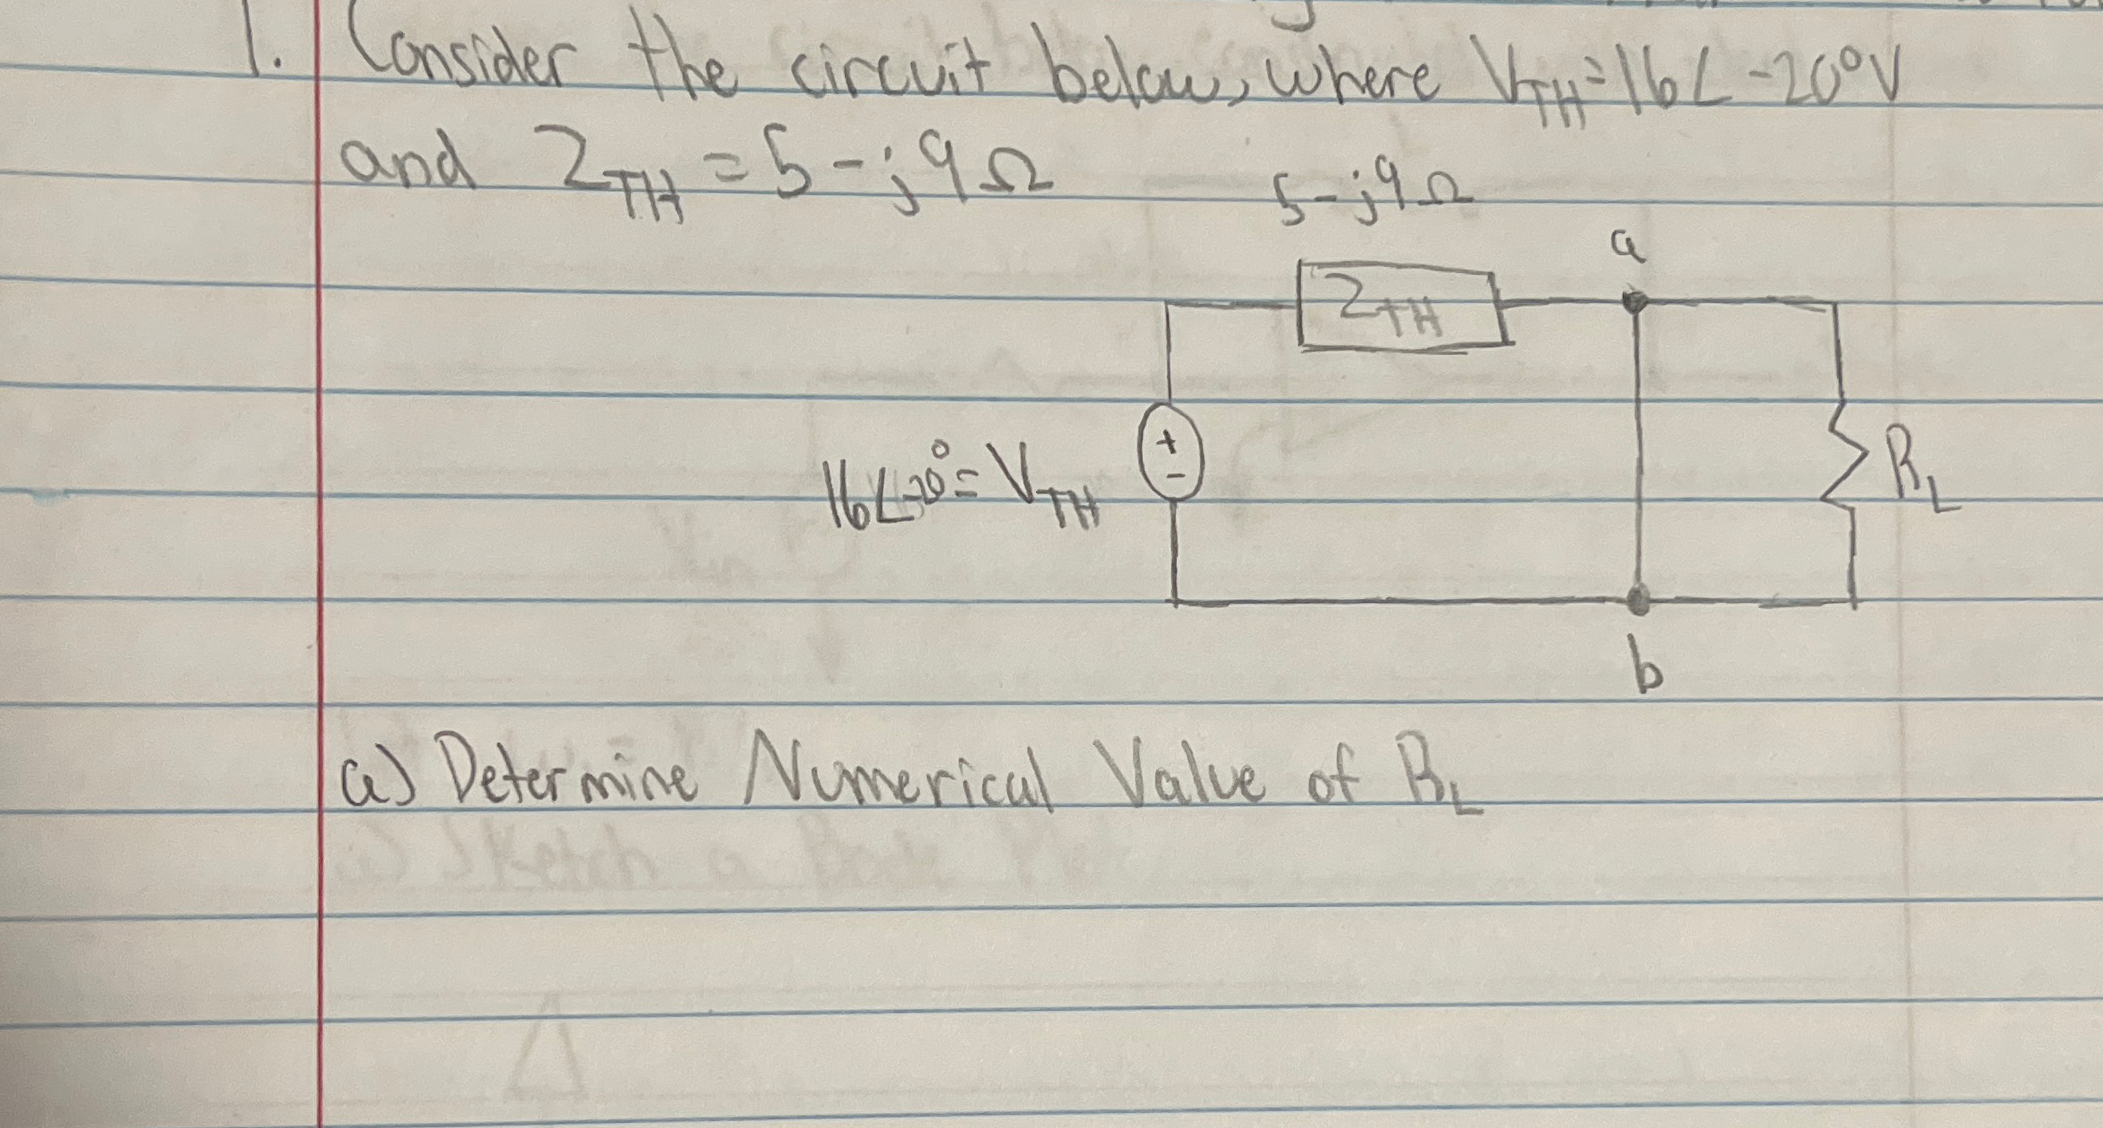 1. Consider the circuit below, where V_TH = 16∠-20°V
and Z_TH = 5-j9Ω
5-j9Ω
a
Z_TH
+
-
16∠-20° = V_TH
R_L
b
a) Determine Numerical Value of R_L